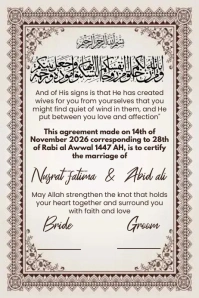 And of His signs is that He has created
wives for you from yourselves that you
might find quiet of wind in them, and He
put between you love and affection"
This agreement made on 14th of
November 2026 corresponding to 28th
of Rabi al Awwal 1447 AH, is to certify
the marriage of
Nusrat fatima & Abid ali
May Allah strengthen the knot that holds
your heart together and surround you
with faith and love
Bride Groom